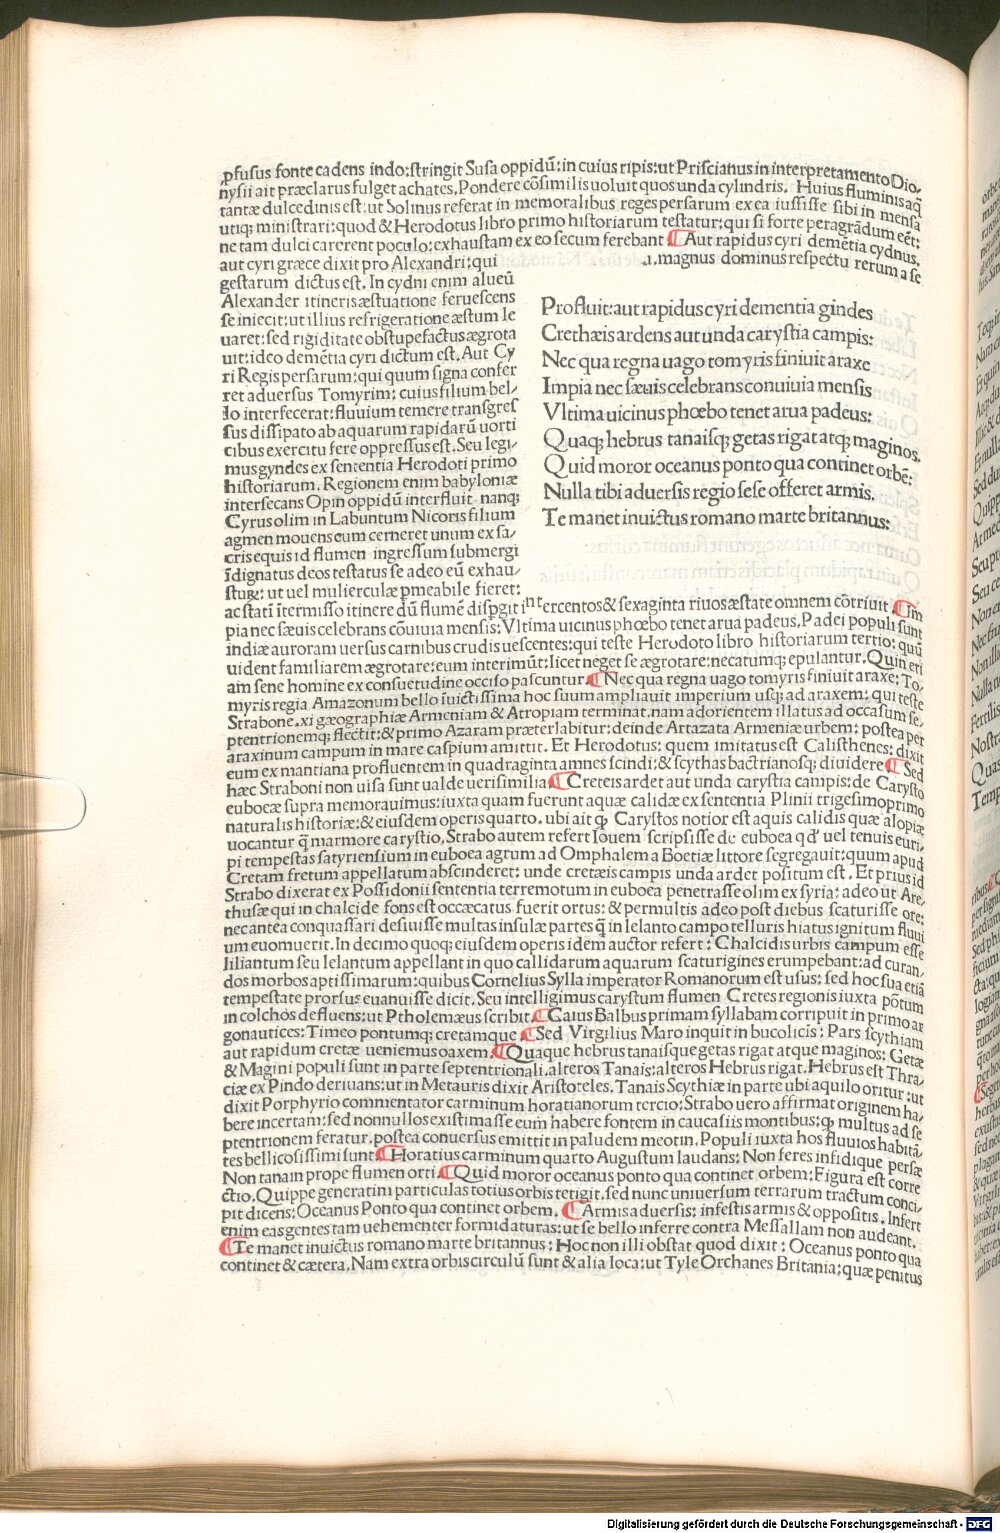 ꝓfusus fonte cadens indo:stringit Susa oppidū:in cuius ripis:ut Priscianus in interpretamento Dio,
nysii ait præclarus fulget achates. Pondere cōsimilis uoluit quos unda cylindris. Huius fluminis aq̄
tantæ dulcedinis est:ut Solinus referat in memoralibus reges persarum ex ea iussisse sibi in mensa
utiq; ministrari:quod & Herodotus libro primo historiarum testatur:qui si forte peragrādum eēt:
ne tam dulci carerent poculo:exhaustam ex eo secum ferebant ¶ Aut rapidus cyri demētia cydnus.
aut cyri græce dixit pro Alexandri:qui .a.magnus dominus respectu rerum a se
gestarum dictus est. In cydni enim alueū
Alexander itineris æstuatione feruescens
se iniecit:ut illius refrigeratione æstum le
uaret:sed rigiditate obstupefactus ægrota
uit:ideo demētia cyri dictum est. Aut Cy
ri Regis persarum:qui quum signa confer
ret aduersus Tomyrim: cuius filium bel-
lo interfecerat:fluuium temere transgres
sus dissipato ab aquarum rapidarū uorti
cibus exercitu fere oppressus est. Seu legi-
mus gyndes ex sententia Herodoti primo
historiarum. Regionem enim babyloniæ
intersecans Opin oppidū interfluit nanq;
Cyrus olim in Labuntum Nicoris filium
agmen mouens cum cerneret unum ex sa-
cris equis id flumen ingressum submergi
īdignatus deos testatus se adeo eū exhau-
stur̄: ut uel mulierculæ pmeabile fieret:
Profluit:aut rapidus cyri dementia gindes
Crethæis ardens aut unda carystia campis:
Nec qua regna uago tomyris finiuit araxe
Impia nec sæuis celebrans conuiuia mensis
Vltima uicinus phœbo tenet arua padeus:
Quaq; hebrus tanaisq; getas rigat atq; maginos.
Quid moror oceanus ponto qua continet orbē:
Nulla tibi aduersis regio sese offeret armis.
Te manet inuictus romano marte britannus:
ac statī ītermisso itinere dū flumē dispgit intercentos & sexaginta riuos æstate omnem cōtriuit. ¶ Im
pia nec sæuis celebrans cōuiuia mensis: Vltima uicinus phœbo tenet arua padeus. Padei populi sunt
indiæ auroram uersus carnibus crudis uescentes:qui teste Herodoto libro historiarum tertio: quū
uident familiarem ægrotare:eum interimūt:licet neget se ægrotare:necatumq; epulantur. Quin eti
am sene homine ex consuetudine occiso pascuntur. ¶ Nec qua regna uago tomyris finiuit araxe: To,
myris regia Amazonum bello iuictissima hoc suum ampliauit imperium usq; ad araxem: qui teste
Strabone.xi gæographiæ Armeniam & Atropiam terminat.nam ad orientem illatus ad occasum se,
ptentrionemq; flectit:& primo Azaram præterlabitur:deinde Artazata Armeniæ urbem: postea per
araxinum campum in mare caspium amittit. Et Herodotus: quem imitatus est Calisthenes: dixit
eum ex mantiana profluentem in quadraginta amnes scindi:& scythas bactrianosq; diuidere ¶ Sed
hæc Straboni non uisa sunt ualde uerisimilia. ¶ Creteis ardet aut unda carystia campis: de Carysto
euboeæ supra memorauimus:iuxta quam fuerunt aquæ calidæ ex sententia Plinii trigesimoprimo
naturalis historiæ:& eiusdem operis quarto. ubi ait ꝙ Carystos notior est aquis calidis quæ alopiæ
uocantur q̄ marmore carystio. Strabo autem refert Iouem scripsisse de euboea q̄d uel tenuis euri,
pi tempestas satyriensium in euboea agrum ad Omphalem a Boetiæ littore segregauit:quum apud
Cretam fretum appellatum abscinderet: unde cretæis campis unda ardet positum est. Et prius id
Strabo dixerat ex Possidonii sententia terremotum in euboea penetrasse olim ex syria: adeo ut Are,
thusæ qui in chalcide fons est occæcatus fuerit ortus: & permultis adeo post diebus scaturisse ore:
nec antea conquassari desiuisse multas insulæ partes q̄ in lelanto campo telluris hiatus ignitum fluui
um euomuerit. In decimo quoq; eiusdem operis idem auctor refert: Chalcidis urbis campum esse
liliantum seu lelantum appellant in quo callidarum aquarum scaturigines erumpebant:ad curan,
dos morbos aptissimarum:quibus Cornelius Sylla imperator Romanorum est usus: sed hoc sua etiā
tempestate prorsus euanuisse dicit. Seu intelligimus carystum flumen Cretes regionis iuxta pōtum
in colchos defluens:ut Ptholemæus scribit. ¶ Gaius Balbus primam syllabam corripuit in primo ar
gonautices: Timeo pontumq; cretamque. ¶ Sed Virgilius Maro inquit in bucolicis: Pars scythiam
aut rapidum cretæ ueniemus oaxem. ¶ Quaque hebrus tanaisque getas rigat atque maginos: Getæ
& Magini populi sunt in parte septentrionali.alteros Tanais:alteros Hebrus rigat. Hebrus est Thra,
ciæ ex Pindo deriuans:ut in Metauris dixit Aristoteles. Tanais Scythiæ in parte ubi aquilo oritur:ut
dixit Porphyrio commentator carminum horatianorum tercio:Strabo uero affirmat originem ha,
bere incertam:sed nonnullos existimasse eum habere fontem in caucasiis montibus: ꝙ multus ad se
ptentrionem feratur. postea conuersus emittit in paludem meotin. Populi iuxta hos fluuios habitā,
tes bellicosissimi sunt ¶ Horatius carminum quarto Augustum laudans: Non feres infidique persæ
Non tanain prope flumen orti. ¶ Quid moror oceanus ponto qua continet orbem: Figura est corre
ctio. Quippe generatim particulas totius orbis tetigit. sed nunc uniuersum terrarum tractum conci,
pit dicens: Oceanus Ponto qua continet orbem. ¶ Armis aduersis: infestis armis & oppositis. Infert
enim eas gentes tam uehementer formidaturas: ut se bello inferre contra Messallam non audeant.
¶ Te manet inuictus romano marte britannus: Hoc non illi obstat quod dixit: Oceanus ponto qua
continet & cætera. Nam extra orbis circulū sunt & alia loca:ut Tyle Orchanes Britania:quæ penitus
Digitalisierung gefördert durch die Deutsche Forschungsgemeinschaft - DFG